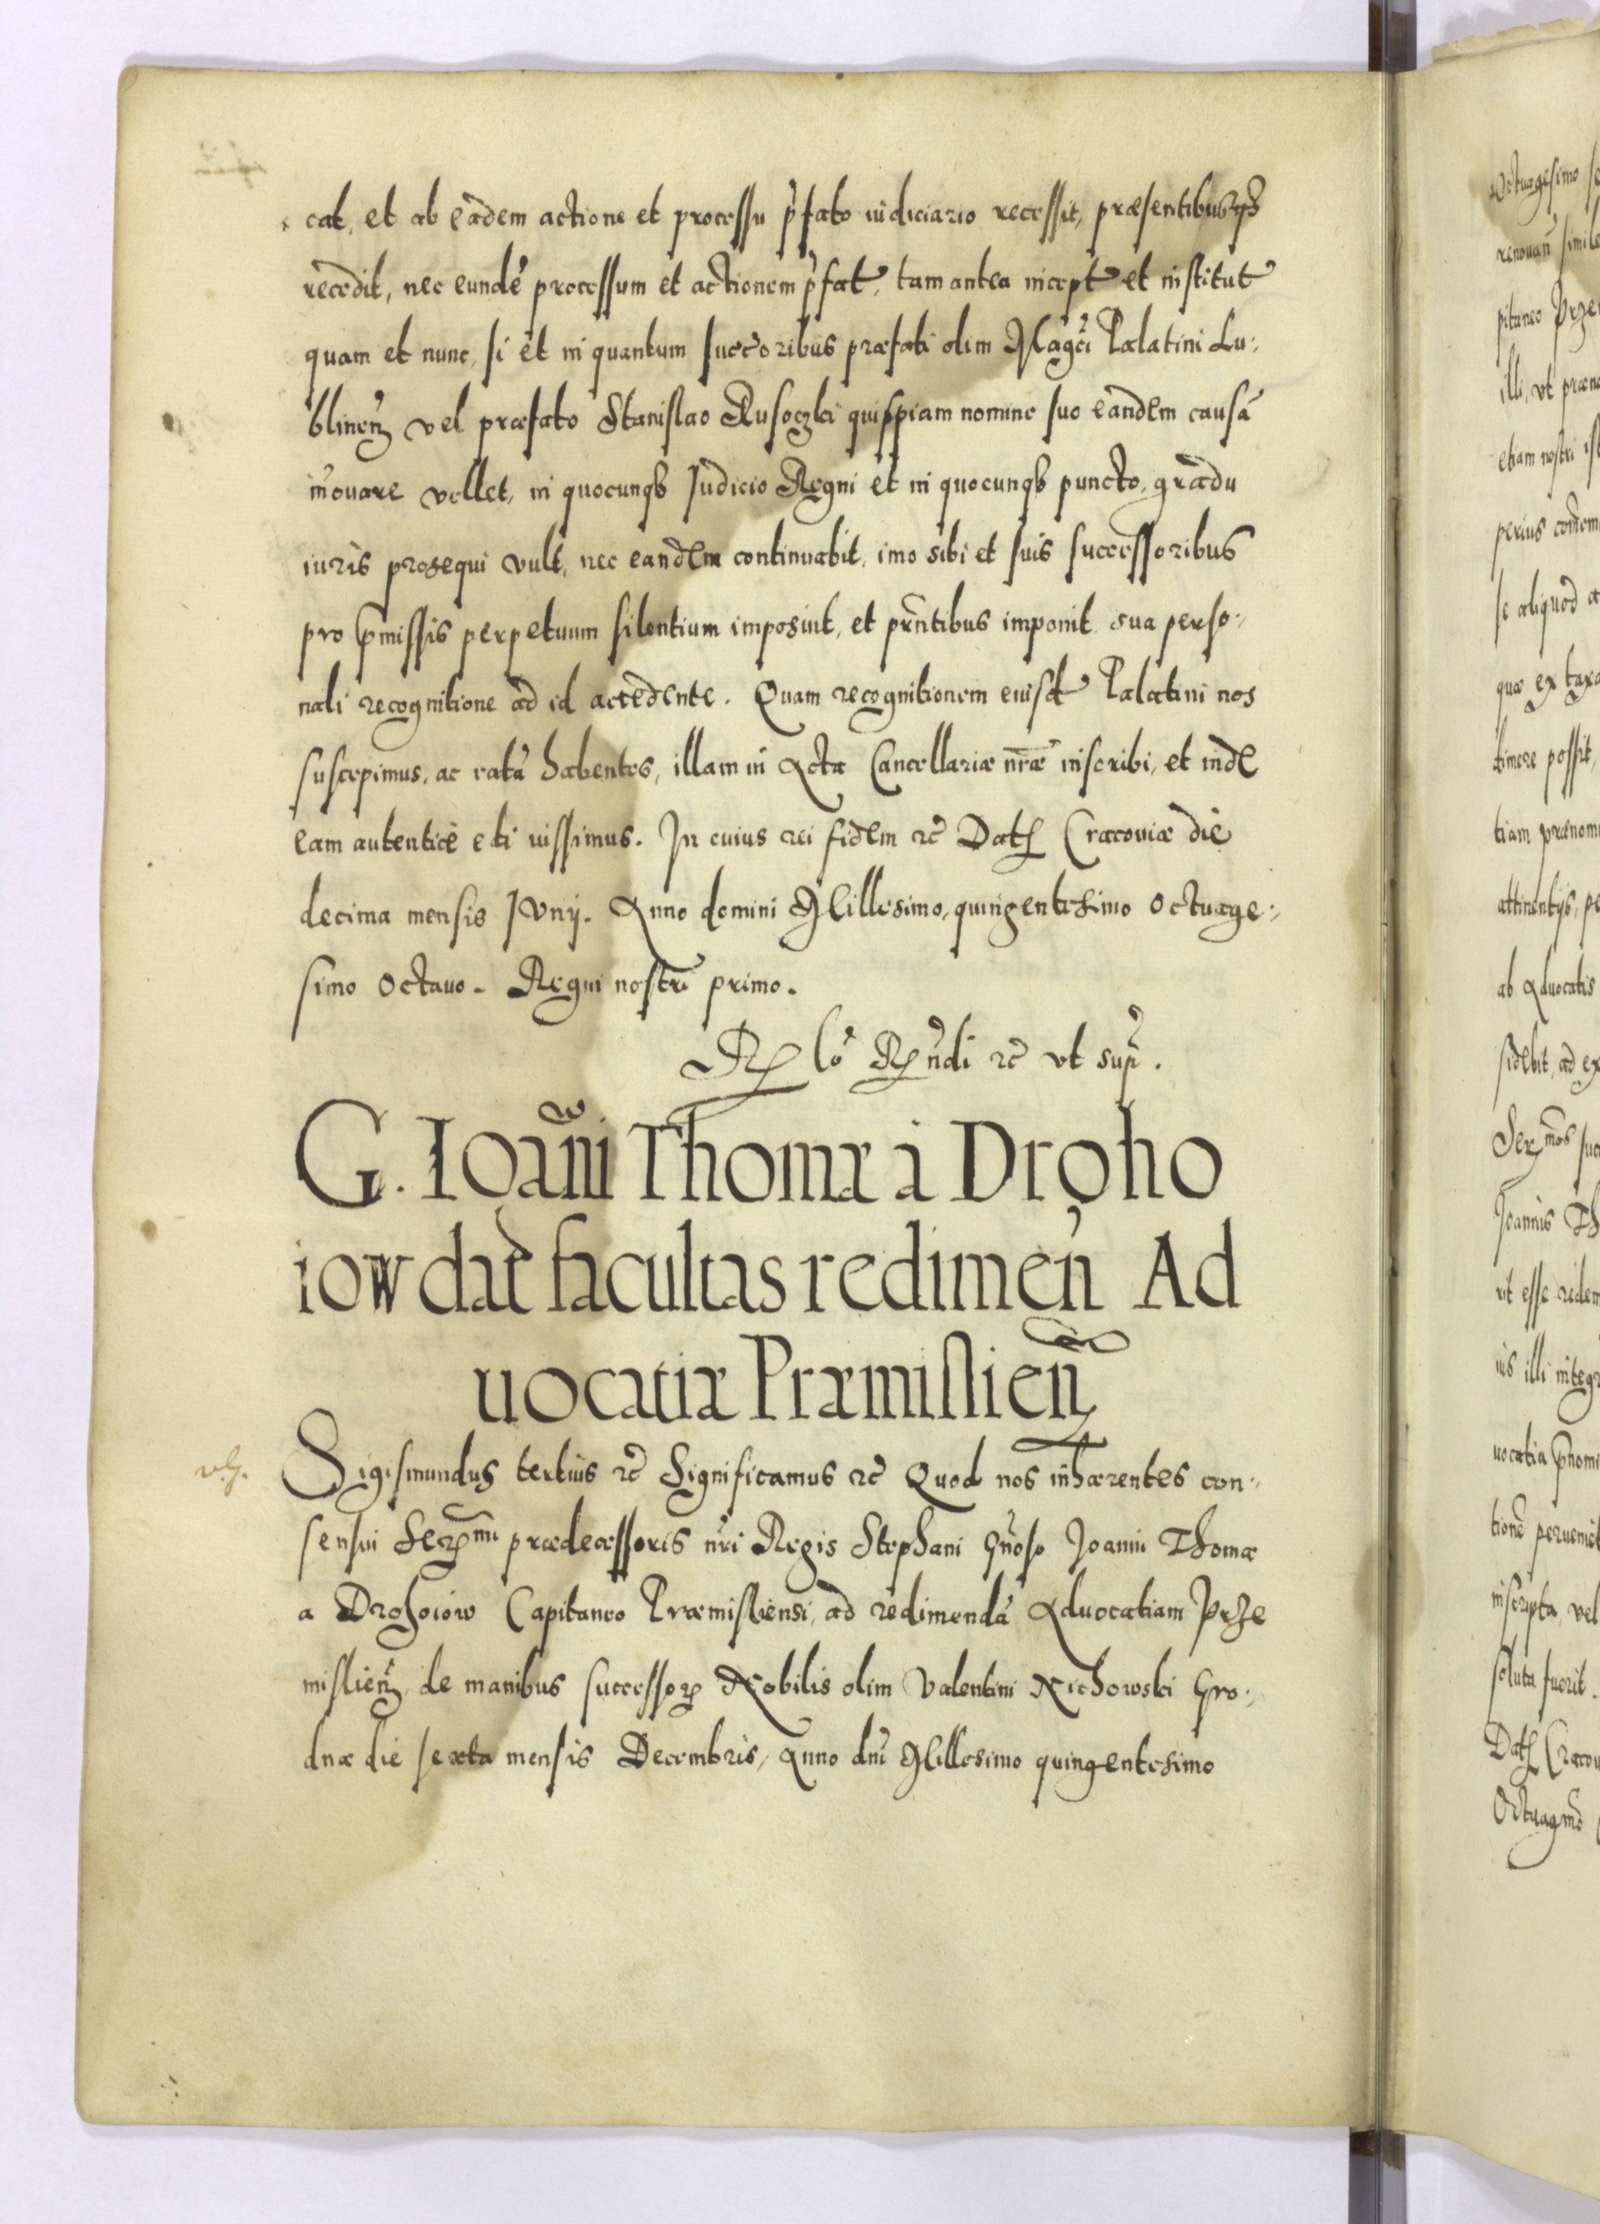 cat, et ab eadem actione et processu p̄fato iudiciario recessit, præsentibusq₃
recedit, nec eundē processum et actionem p̄fat, tam antea incept et institut
quam et nunc, si et in quantum succoribus præfati olim Magci Palatini Lu:
blinen̄ vel præfato Stanislao Rusoczki quispiam nomine suo eandem causā
iñouare vellet, in quocunqß Iudicio Regni et in quocunqß puncto, gradu
iuris prosequi vult, nec eandem continuabit, imo sibi et suis successoribus
pro p̄missis perpetuum silentium imposuit, et prñtibus imponit sua perso:
nali recognitione ad id accedente. Quam recognitionem eiusd Palatini nos
suscepimus, ac ratā habentes, illam in Acta Cancellariæ nr̄æ inscribi, et inde
eam autenticè edi iussimus. In cuius rei fidem rc̄ Dat Cracouiæ die
decima mensis Iunij. Anno domini Millesimo, quingentesimo Octuage:
simo Octauo. Regni nostri primo.
Rndi rc̄ vt sup̄.
G. Ioañi Thomæ à Droho
iow dat facultas redimen̄ Ad
uocatiæ Præmislien̄
Sigismundus tertius rc̄ Significamus rc̄ Quod nos inhærentes con:
sensui Sermi prædecessoris nr̄i Regis Stephani Gn̄oso Joanni Thomæ
a Drohoiow Capitaneo Præmisliensi, ad redimendā Aduocatiam Prze
mislien̄, de manibus successor Nobilis olim Valentini Richowski Gro:
dnæ die sexta mensis Decembris, Anno dn̄i Millesimo quingentesimo
Octuagesimo
renouan̄
pitaneo
illi, vt
etiam nostri
perius
se aliquod
quæ ex
timere possit,
tiam
attinentijs,
ab Aduocatis
sidebit, ad
Joannis Th
rit esse
ius illi
uocatia
inscripta, vel
soluta fuerit.
Dat Cracou